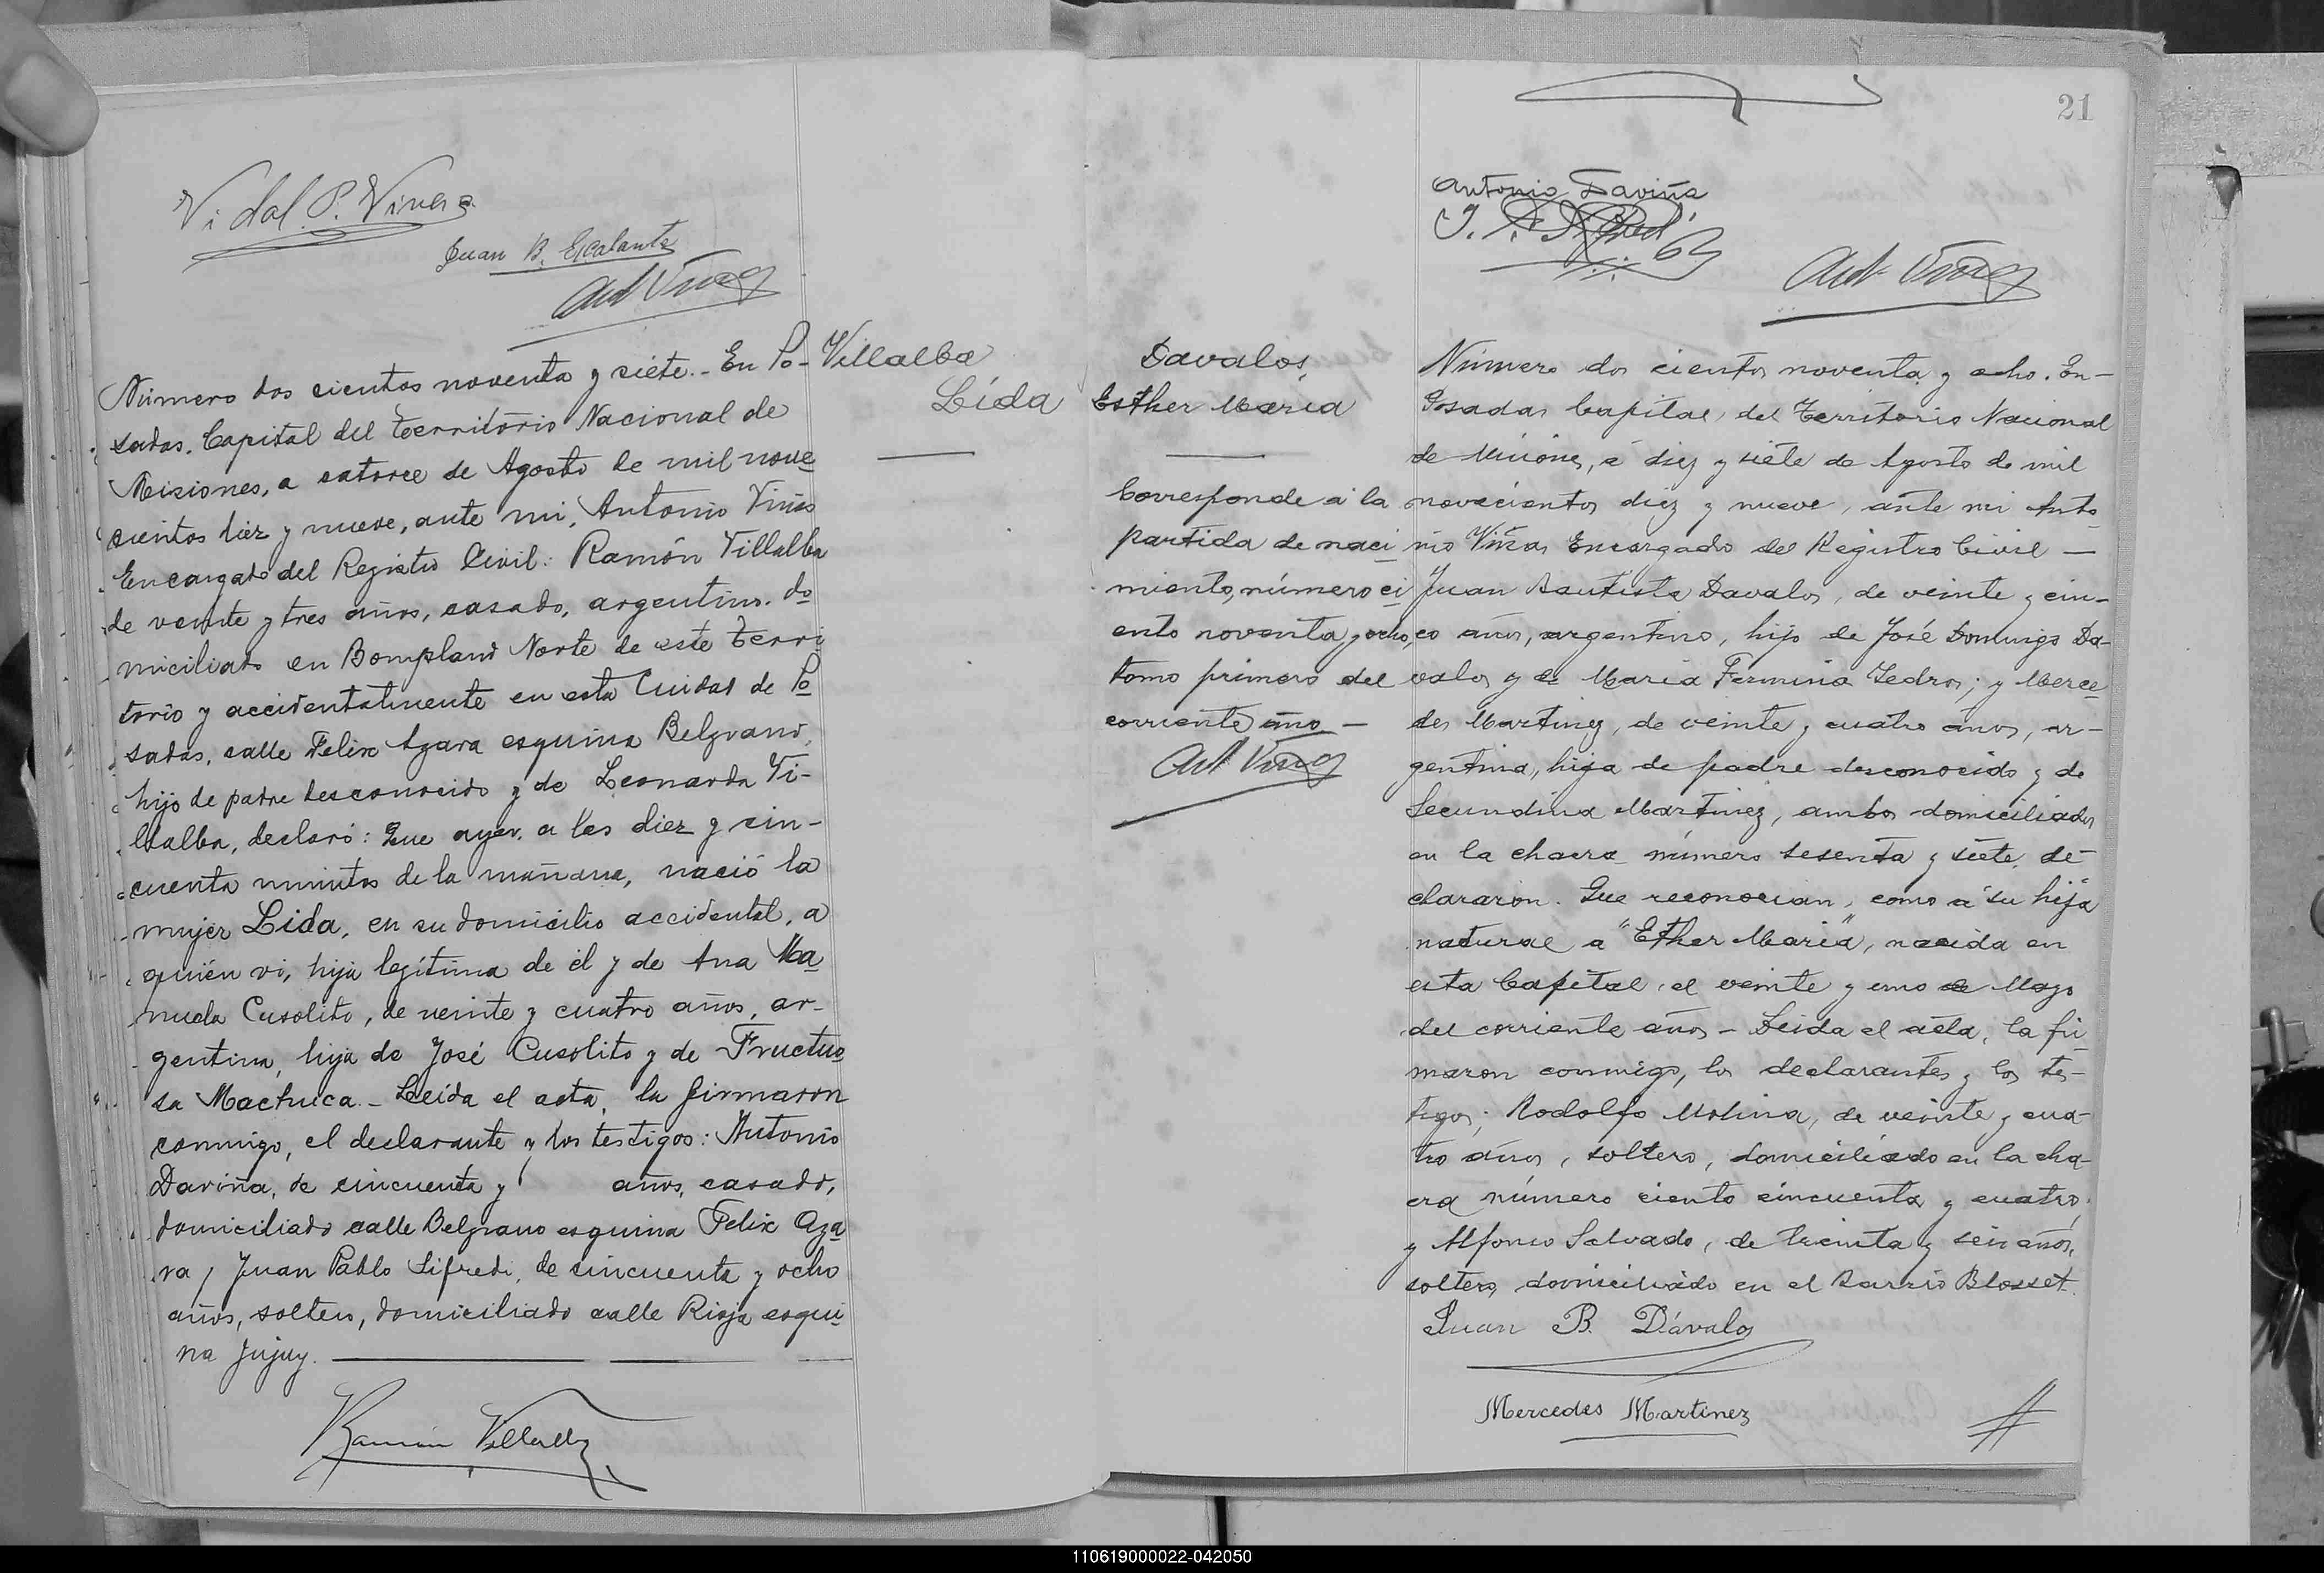 Vidal P. Vivera
Juan B. Escalante
Ant Viñas
Número dos cientos noventa y siete.- En Po-
sadas, Capital del territorio Nacional de
Misiones, a catorce de Agosto de mil nove
cientos diez y nueve, ante mi, Antonio Viñas
Encargado del Registro Civil: Ramón Villalba
de veinte y tres años, casado, argentino, do
miciliado en Bompland Norte de este terri
torio y accidentalmente en esta Ciudad de Po
sadas, calle Felix Azara esquina Belgrano,
hijo de padre desconocido y de Leonarda Vi-
llalba, declaró: Que ayer, a las diez y cin-
cuenta minutos de la mañana, nació la
mujer Lida, en su domicilio accidental, a
quién vi, hija legítima de él y de Ana Ma
nuela Cusolito, de veinte y cuatro años, ar-
gentina, hija de José Cusolito y de Fructuo
sa Machuca.- Leída el acta, la firmaron
conmigo, el declarante y los testigos: Antonio
Daviña, de cincuenta y años, casado,
domiciliado calle Belgrano esquina Felix Aza
ra y Juan Pablo Lifredi, de cincuenta y ocho
años, soltero, domiciliado calle Rioja esqui
na Jujuy.
Ramón Villalba
Villalba
Lída
21
Antonio Daviña
Ant Viñas
Davalos,
Esther María
Corresponde a la
partida de naci
miento, número ci
ento noventa y ocho,
tomo primero del
corriente año —
Ant Viñas
Número dos cientos noventa y ocho. En-
Posadas Capital, del Territorio Nacional
de Misiones, a diez y siete de Agosto de mil
novecientos diez y nueve, ante mi Anto
nio Viñas Encargado del Registro Civil —
Juan Bautista Davalos, de veinte y cin-
co años, argentino, hijo de José Domingo Da-
valos y de María Fermina Ledros; y Merce
des Martinez, de veinte y cuatro años, ar-
gentina, hija de padre desconocido y de
Secundina Martinez, ambos domiciliados
en la chacra número sesenta y siete, de-
clararon. Que reconocian, como a su hija
natural a "Esther María", nacida en
esta Capital, el veinte y uno de Mayo
del corriente año - Leida el acta, la fir
maron conmigo, los declarantes y los tes-
tigos; Rodolfo Molina, de veinte y cua-
tro años, soltero, domiciliado en la cha-
cra número ciento cincuenta y cuatro,
y Alfonso Salvado, de treinta y seis años,
soltero, domiciliado en el Barrio Blosset.
Juan B. Dávalos
Mercedes Martinez
110619000022-042050